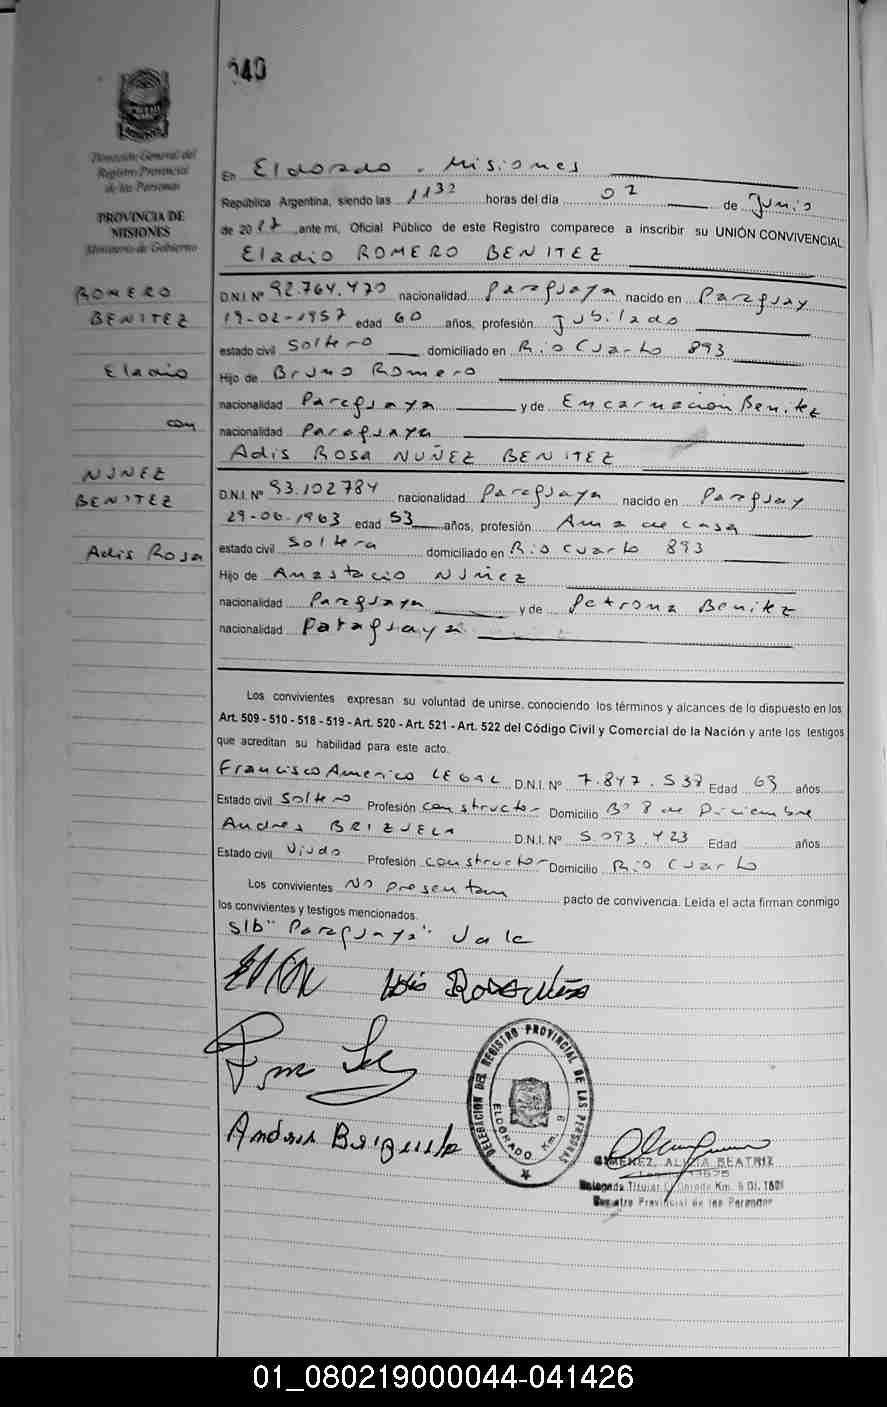 040
Dirección General del
Registro Provincial
de las Personas
PROVINCIA DE
MISIONES
Ministerio de Gobierno
ROMERO
BENITEZ
Eladio
con
NUÑEZ
BENITEZ
Adis Rosa
En Eldorado - Misiones
República Argentina, siendo las 1132 horas del día 02 de Junio
de 2017, ante mi, Oficial Público de este Registro comparece a inscribir su UNIÓN CONVIVENCIAL
Eladio ROMERO BENITEZ
D.N.I. Nº 92.764.470 nacionalidad Paraguaya nacido en Paraguay
19-02-1957 edad 60 años, profesión Jubilado
estado civil Soltero domiciliado en Rio Cuarto 893
Hijo de Bruno Romero
nacionalidad Paraguaya y de Encarnación Benitez
nacionalidad Paraguaya
Adis Rosa NUÑEZ BENITEZ
D.N.I. Nº 93.102784 nacionalidad Paraguaya nacido en Paraguay
29-06-1963 edad 53 años, profesión Ama de casa
estado civil Soltera domiciliado en Rio Cuarto 893
Hijo de Anastacio Nuñez
nacionalidad Paraguaya y de Petrona Benitez
nacionalidad Paraguaya
Los convivientes expresan su voluntad de unirse, conociendo los términos y alcances de lo dispuesto en los
Art. 509 - 510 - 518 - 519 - Art. 520 - Art. 521 - Art. 522 del Código Civil y Comercial de la Nación y ante los testigos
que acreditan su habilidad para este acto.
Francisco Americo LEGAL D.N.I. Nº 7.847.538 Edad 63 años
Estado civil Soltero Profesión constructor Domicilio Bº 8 de Diciembre
Andres BRIZUELA D.N.I. Nº 5.093.423 Edad años
Estado civil Viudo Profesión constructor Domicilio Rio Cuarto
Los convivientes No presentan pacto de convivencia. Leida el acta firman conmigo
los convivientes y testigos mencionados.
S/b "Paraguaya" Vale
Andres Brizuela
DELEGACION DEL REGISTRO PROVINCIAL DE LAS PERSONAS
ELDORADO Km. 9
GIMENEZ, ALICIA BEATRIZ
Delegada Titular Eldorado Km. 9 Of. 1608
Registro Provincial de las Personas
01_080219000044-041426